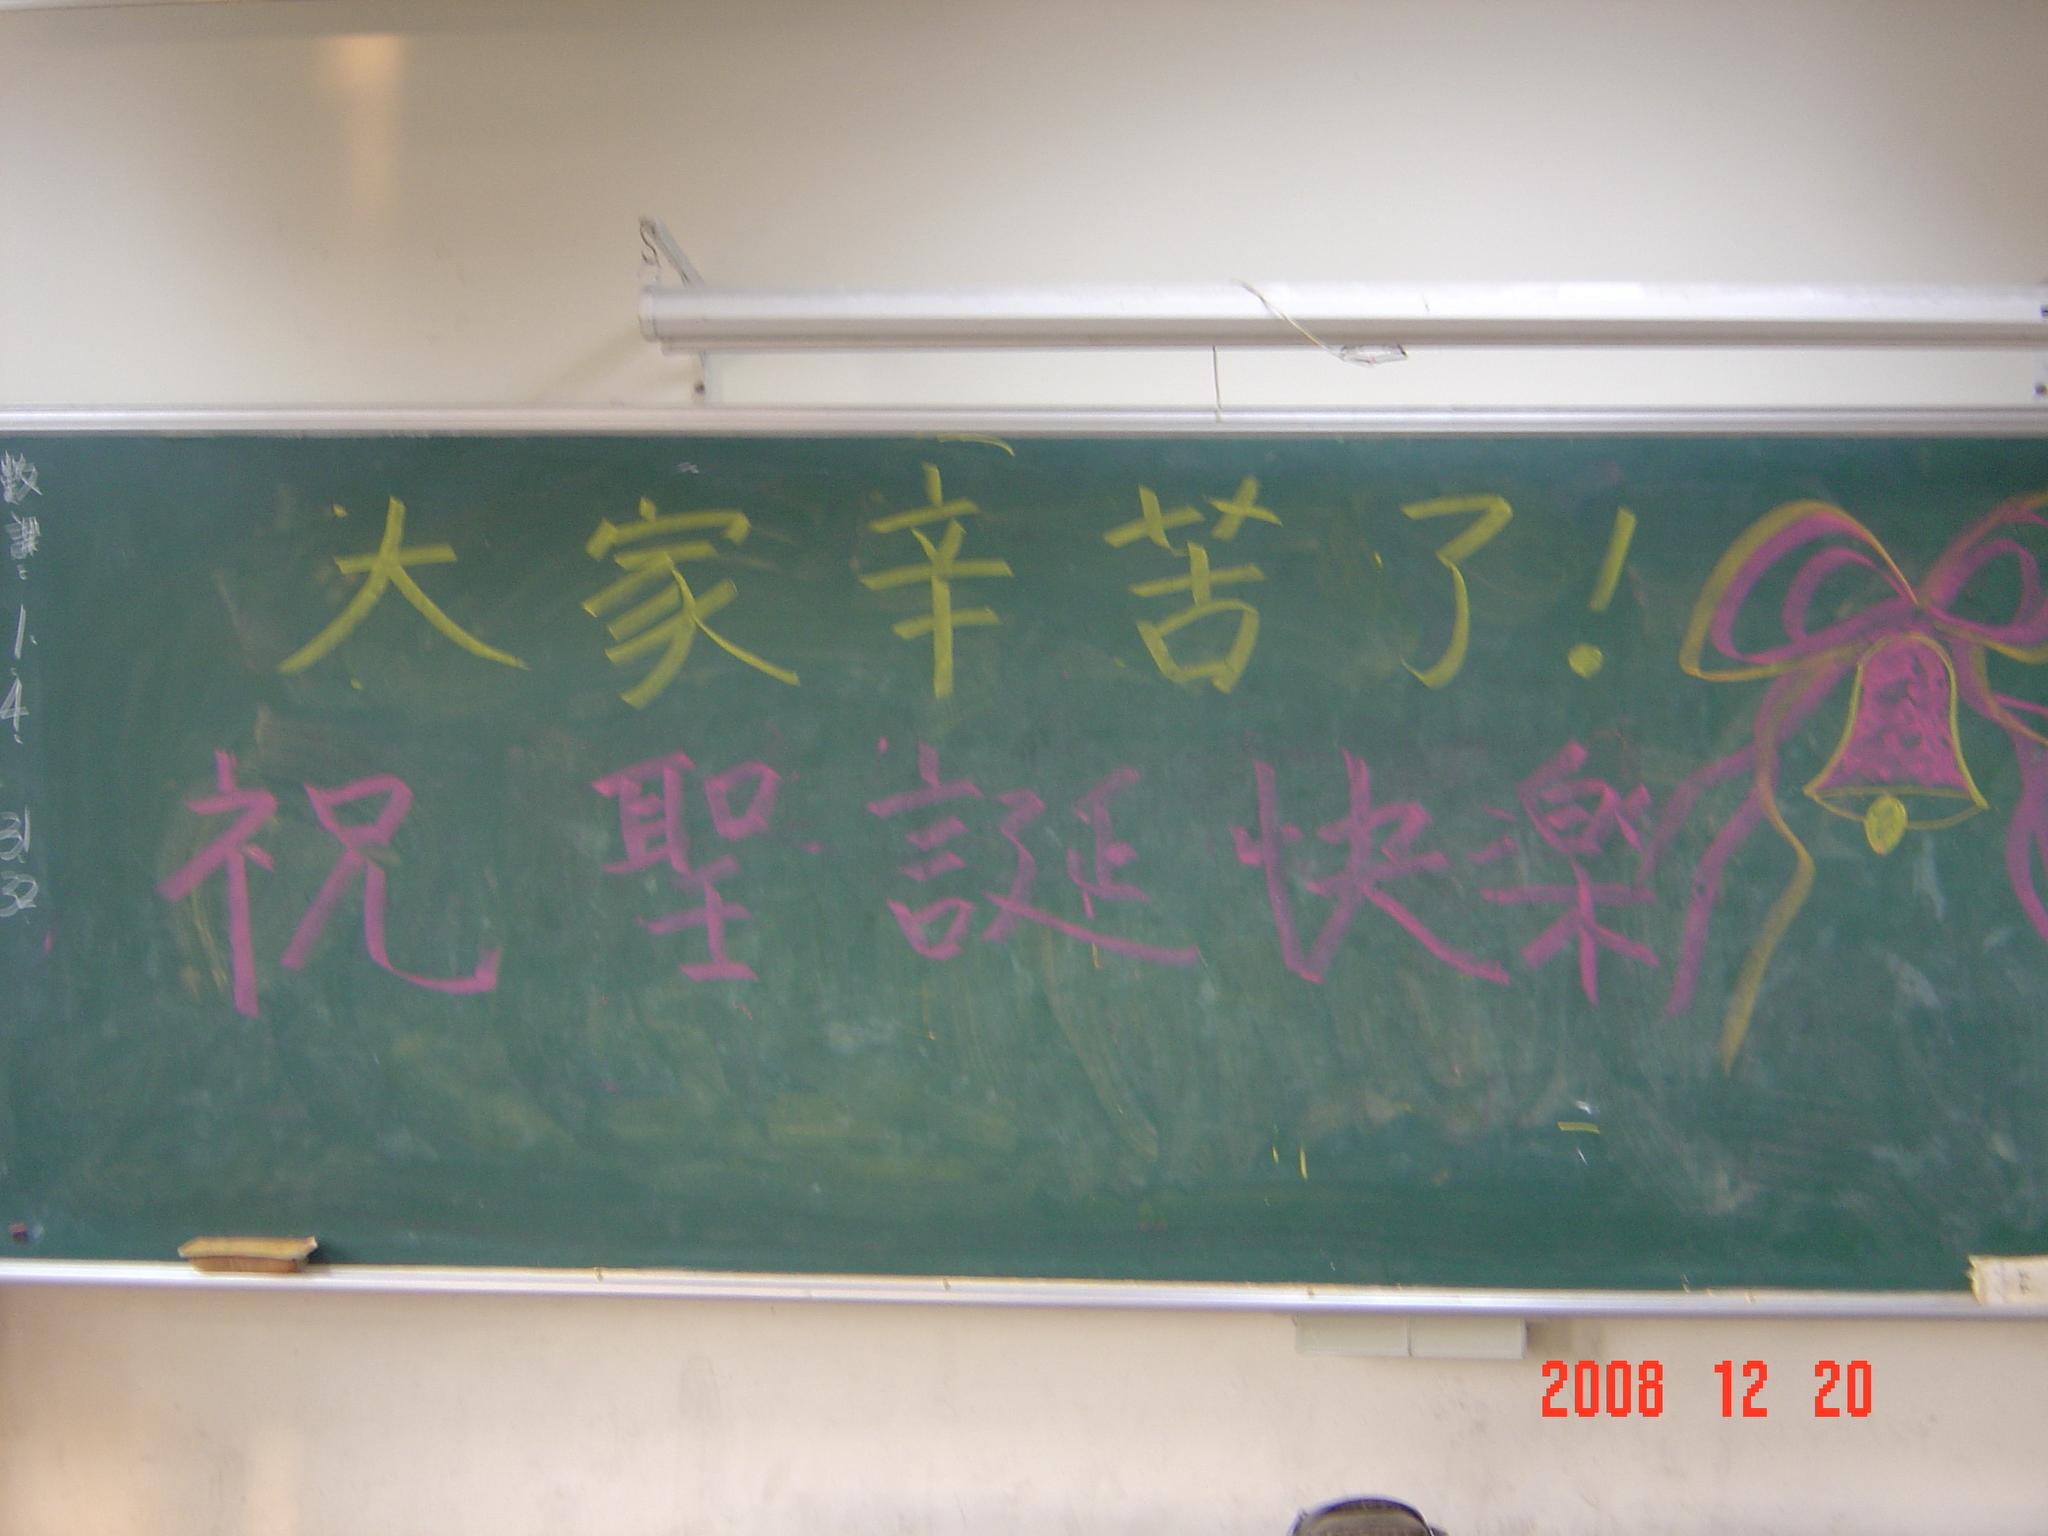 大家辛苦了!
祝 聖誕快楽
數
1.
4.
31
32
2008 12 20